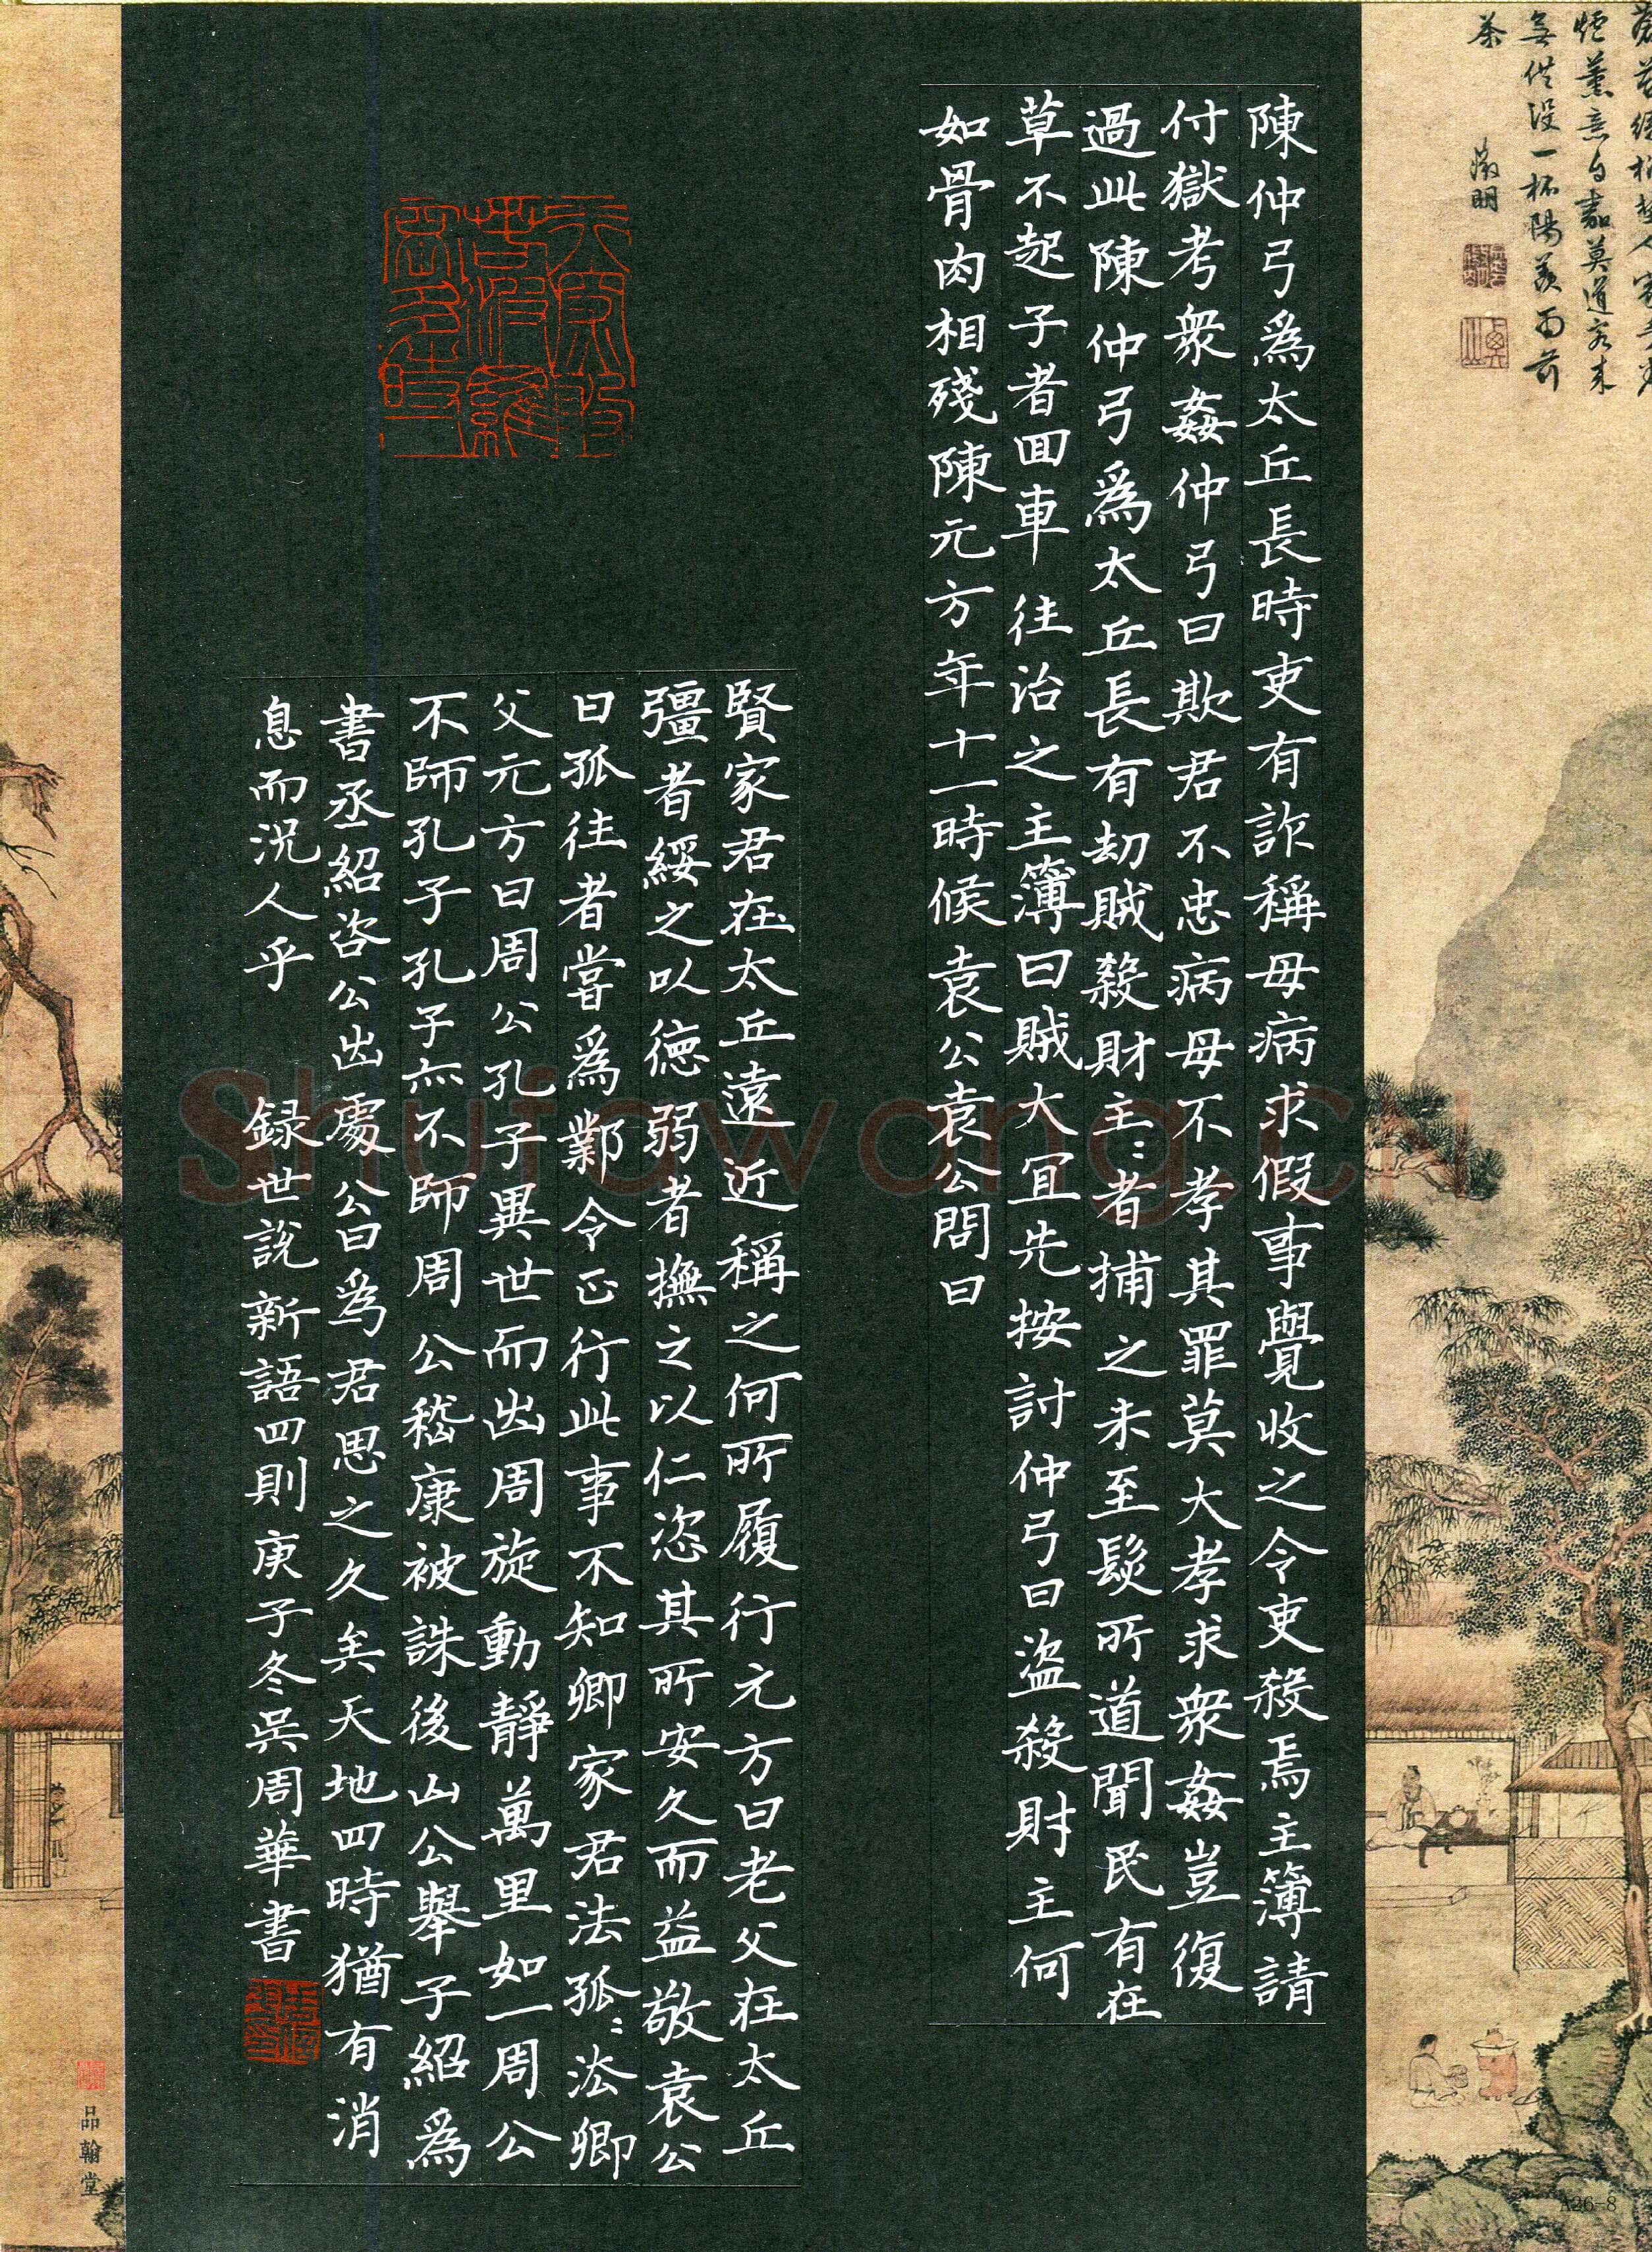 陳仲弓爲太丘長時吏有詐稱母病求假事覺收之令吏殺焉主簿請
付獄考衆姦仲弓曰欺君不忠病母不孝其罪莫大孝求衆姦豈復
過此陳仲弓爲太丘長有劫賊殺財主〻者捕之未至發所道聞民有在
草不起子者回車往治之主簿曰賊大宜先按討仲弓曰盜殺財主何
如骨肉相殘陳元方年十一時候袁公袁公問曰
賢家君在太丘遠近稱之何所履行元方曰老父在太丘
彊者綏之以德弱者撫之以仁恣其所安久而益敬袁公
曰孤往者嘗爲鄴令正行此事不知卿家君法孤〻法卿
父元方曰周公孔子異世而出周旋動靜萬里如一周公
不師孔子孔子亦不師周公嵇康被誅後山公舉子紹爲
書丞紹咨公出處公曰爲君思之久矣天地四時猶有消
息而況人乎 録世說新語四則庚子冬吳周華書
無供沒一杯陽羨雨前
茶 徵明
品翰堂
Shufawang.cn
A26-8